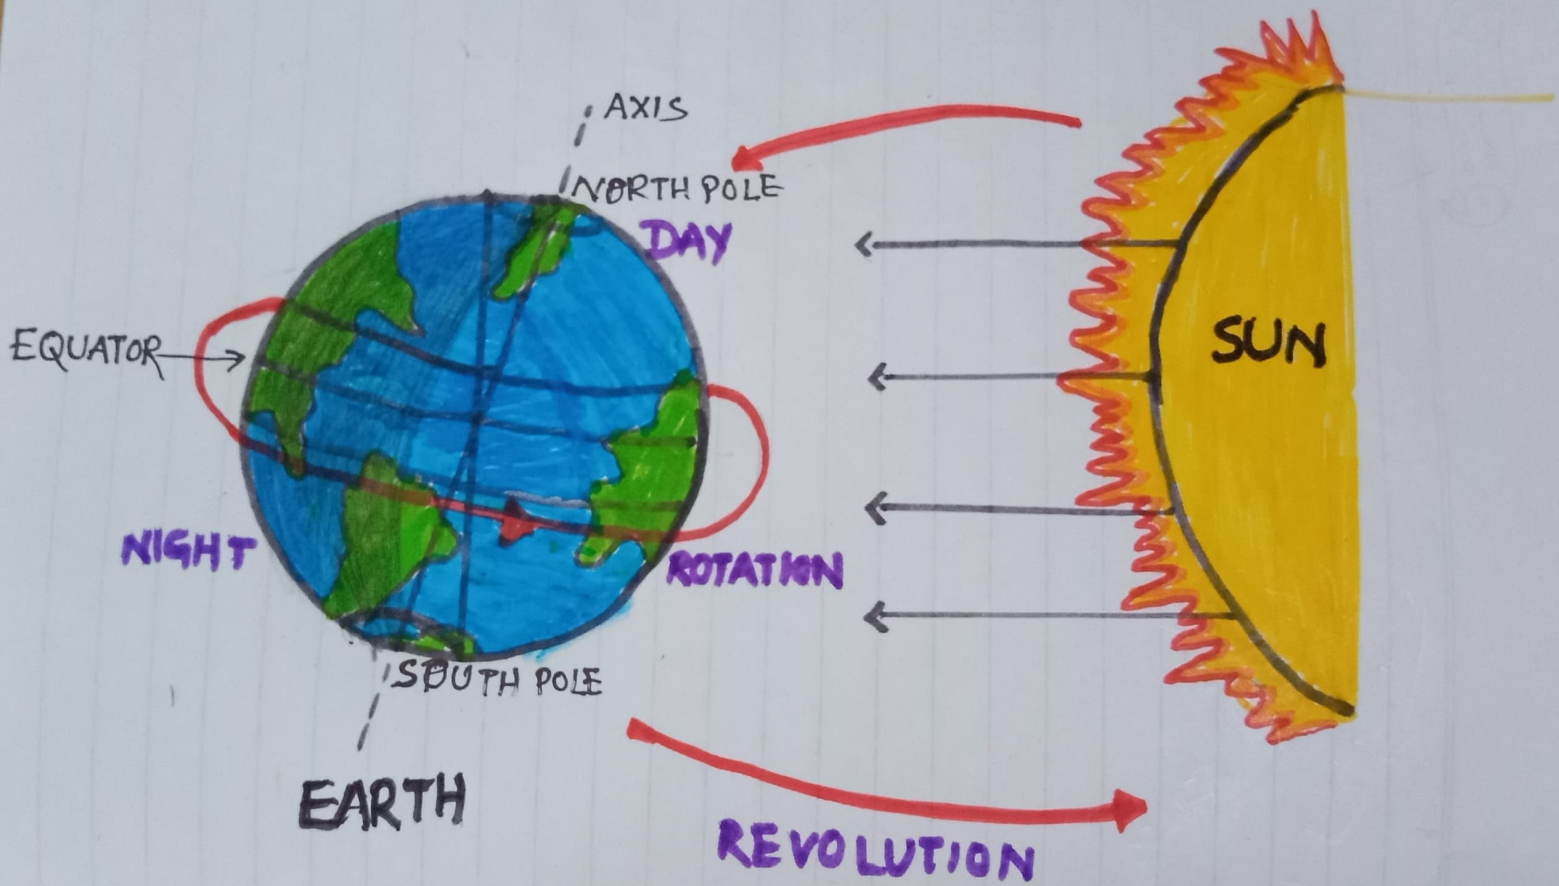 AXIS
NORTH POLE
DAY
EQUATOR
SUN
NIGHT
ROTATION
SOUTH POLE
EARTH
REVOLUTION